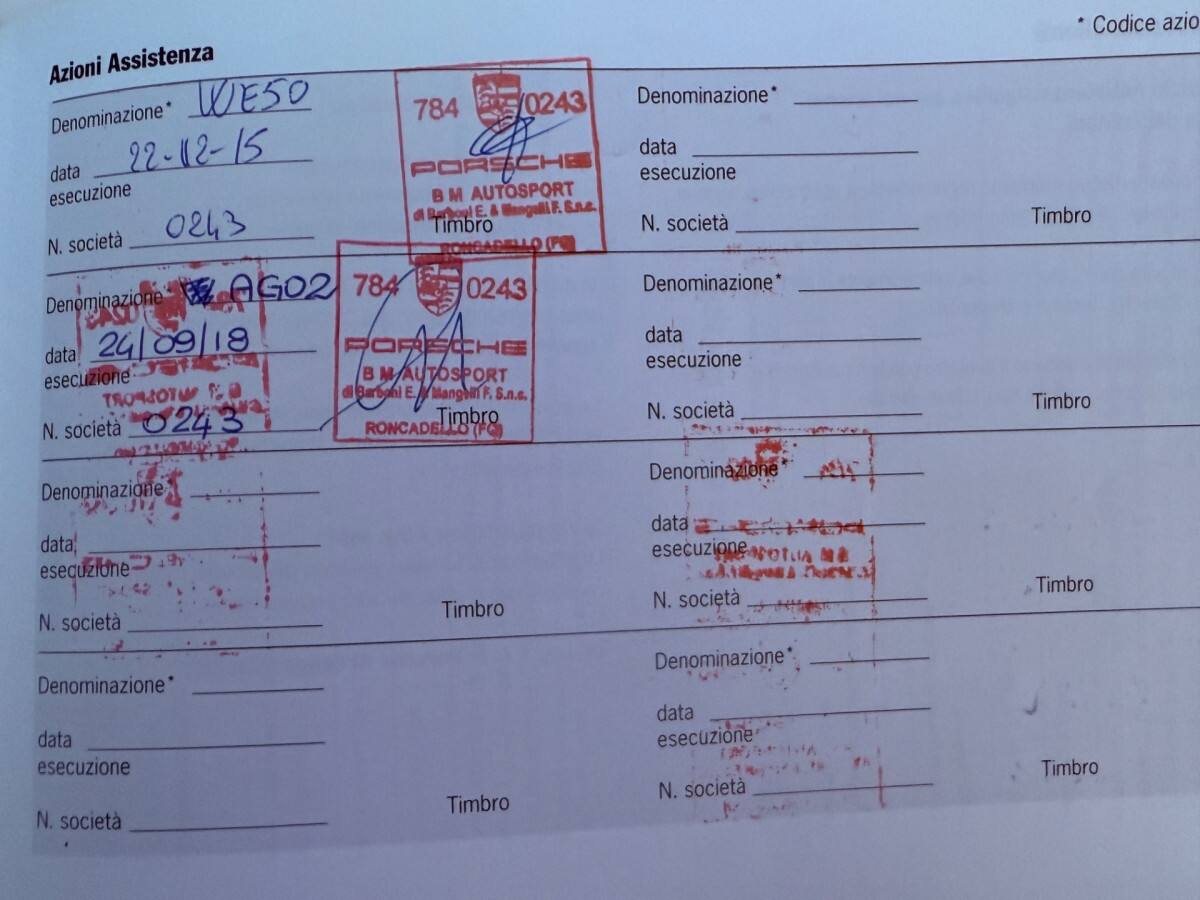 * Codice azio
Azioni Assistenza
Denominazione* WE50
data 22-12-15
esecuzione
N. società 0243
784 0243
PORSCHE
B M AUTOSPORT
di Barboni E. & Mangelli F. S.n.c.
Timbro
RONCADELLO (FO)
Denominazione*
data
esecuzione
N. società
Timbro
Denominazione AG02
data 24/09/18
esecuzione
N. società 0243
784 0243
PORSCHE
B M AUTOSPORT
di Barboni E. & Mangelli F. S.n.c.
Timbro
RONCADELLO (FO)
Denominazione*
data
esecuzione
N. società
Timbro
Denominazione
data
esecuzione
N. società
Timbro
Denominazione*
data
esecuzione
N. società
Timbro
Denominazione*
data
esecuzione
N. società
Timbro
Denominazione*
data
esecuzione
N. società
Timbro